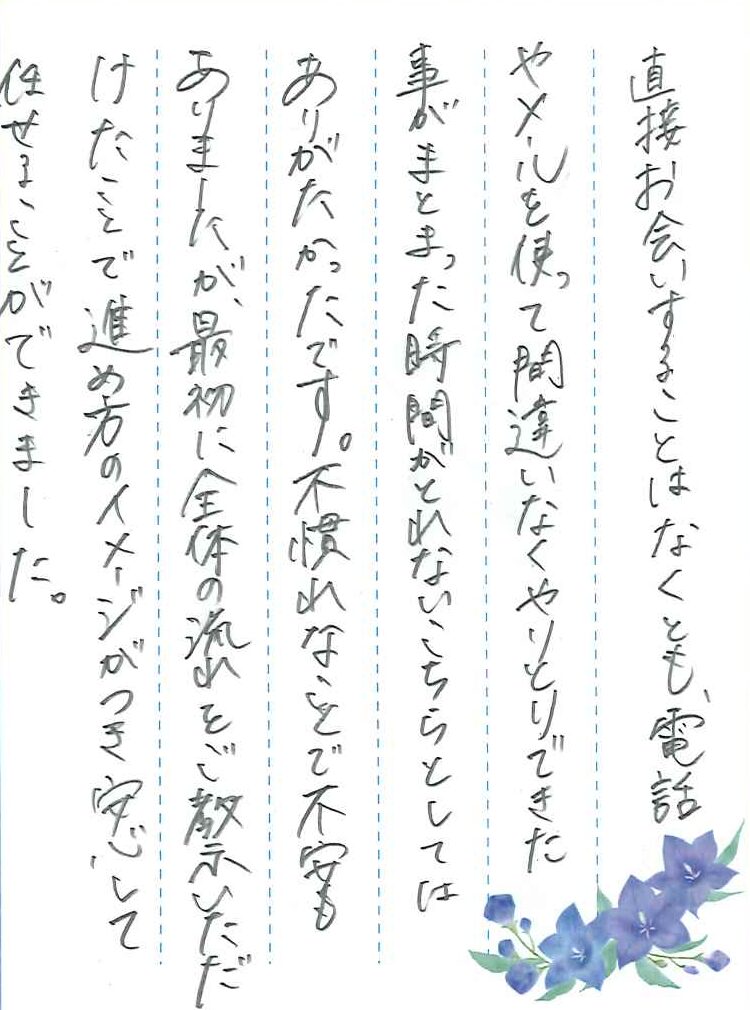 直接お会いすることはなくとも、電話
やメールを使って間違いなくやりとりできた
事がまとまった時間がとれないこちらとしては
ありがたかったです。不慣れなことで不安も
ありましたが、最初に全体の流れをご教示いただ
けたことで進め方のイメージがつき安心して
任せることができました。